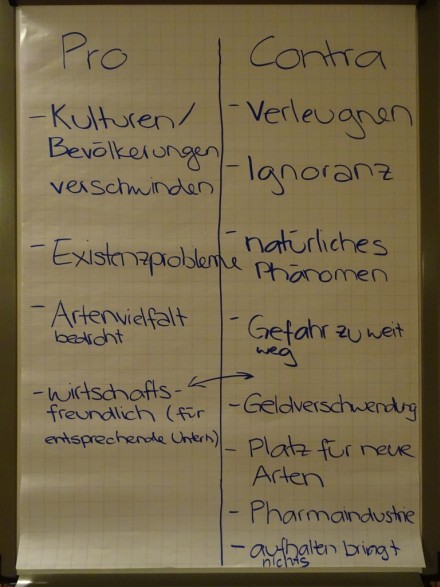 Pro
- Kulturen/
Bevölkerungen
verschwinden
- Existenzprobleme
- Artenvielfalt
bedroht
- wirtschafts-
freundlich (für
entsprechende Untern)
Contra
- Verleugnen
- Ignoranz
- natürliches
Phänomen
- Gefahr zu weit
weg
- Geldverschwendung
- Platz für neue
Arten
- Pharmaindustrie
- aufhalten bringt
nichts